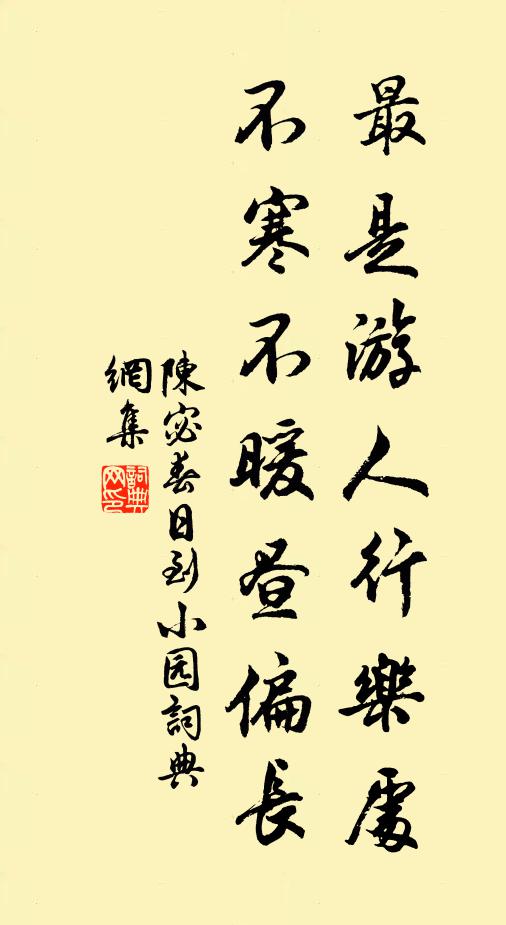 最是游人行樂處
不寒不暖昼偏長
陳宓春日到小园詞典
網集
詞典網印